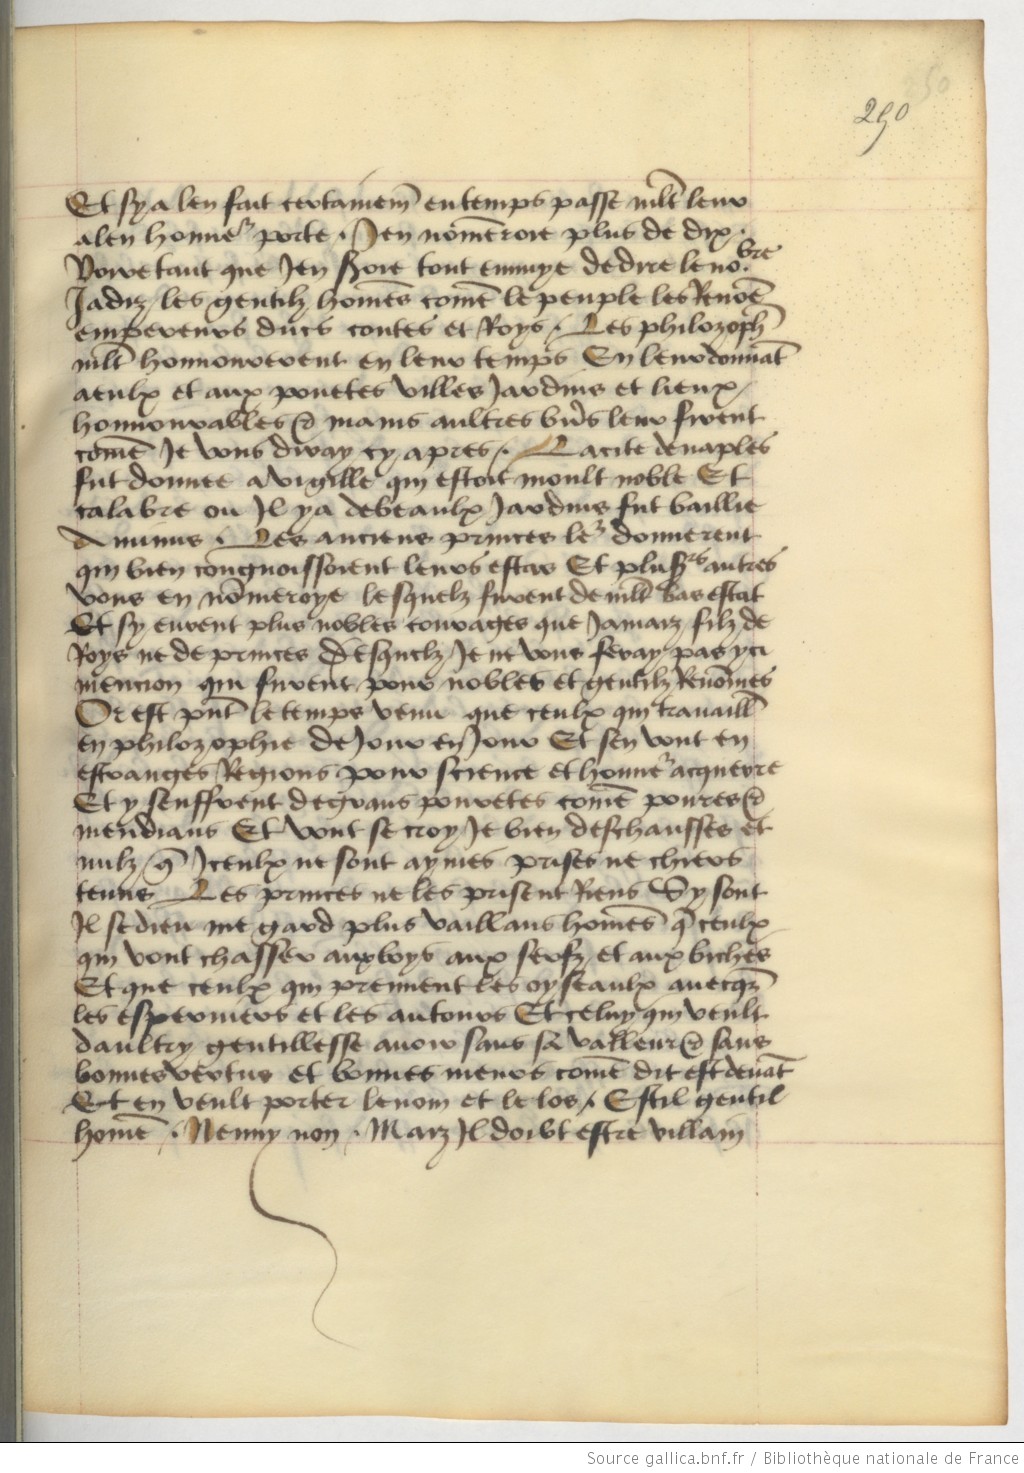 290
Et sy a len fait certainem̄ en temps passe mlt̄ leur
a len honne᷑ porte . Jen nom̄eroie plus de dix .
Voire tant que Jen seroie tout ennuye de dire le no.bre
Jadiz les gentilz hom̄es com̄e le peuple les Renōe
empereurs ducs contes et Roys / Les philozoph̄
mlt̄ honnourerent en leur temps En leur donnāt
a eulx et aux pouetes villes Jardins et lieux
honnourables et mains aultres bn̄s leur firent
com̄e Je vous diray cy apres / . La cite de naples
fut donnee a virgille qui estoit moult noble Et
calabre ou Jl y a de beaulx Jardins fut baillie
A Les anciens princes le᷑ donnerent
qui bien congnoissoient leurs estas Et plusrs autres
vous en nōmeroye lesquelz furent de mlt̄ bas estat
Et sy eurent plus nobles courages que Jamaiz filz de
Roys ne de princes Desquelz Je ne vous feray pas yci
mencion qui furent pour nobles et gentilz Renōmes
Or est pn̄t le temps venu que ceulx qui travaill̄
en philozophie de Jour en Jour Et sen vont en
estranges Regions pour science et honne᷑ acquerre
Et y seuffrent de grans povretes com̄e povres et
mendians Et vont se croy Je bien deschausses et
nulz / q̄ Jceulx ne sont aymes prises ne chiers
tenus Les princes ne les prisent Riens Sy sont
Jl se dieu me gard plus vaillans hom̄es q̄ ceulx
qui vont chasser aux boys aux serfz et aux biches
Et que ceulx qui prennent les oyseaulx avecqz̄
les esperviers et les autours Et celuy qui veult
daultry gentillesse avoir sans sa valleur et sans
bonnes vertus et bonnes meurs com̄e dit est devāt
Et en veult porter le nom et le los / Est il gentil
hom̄e . Nenny non . Maiz Jl doibt estre villain
Source gallica.bnf.fr / Bibliothèque nationale de France